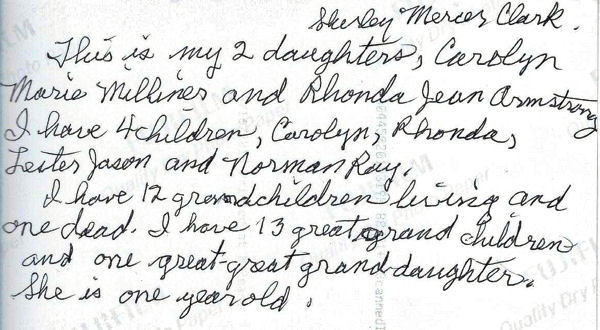 Shirley Mercer Clark.
This is my 2 daughters, Carolyn
Marie Milliner and Rhonda Jean Armstrong
I have 4 children, Carolyn, Rhonda,
Lester Jason and Norman Ray.
I have 12 grandchildren living and
one dead. I have 13 great grand children
and one great-great grand-daughter.
She is one year old.